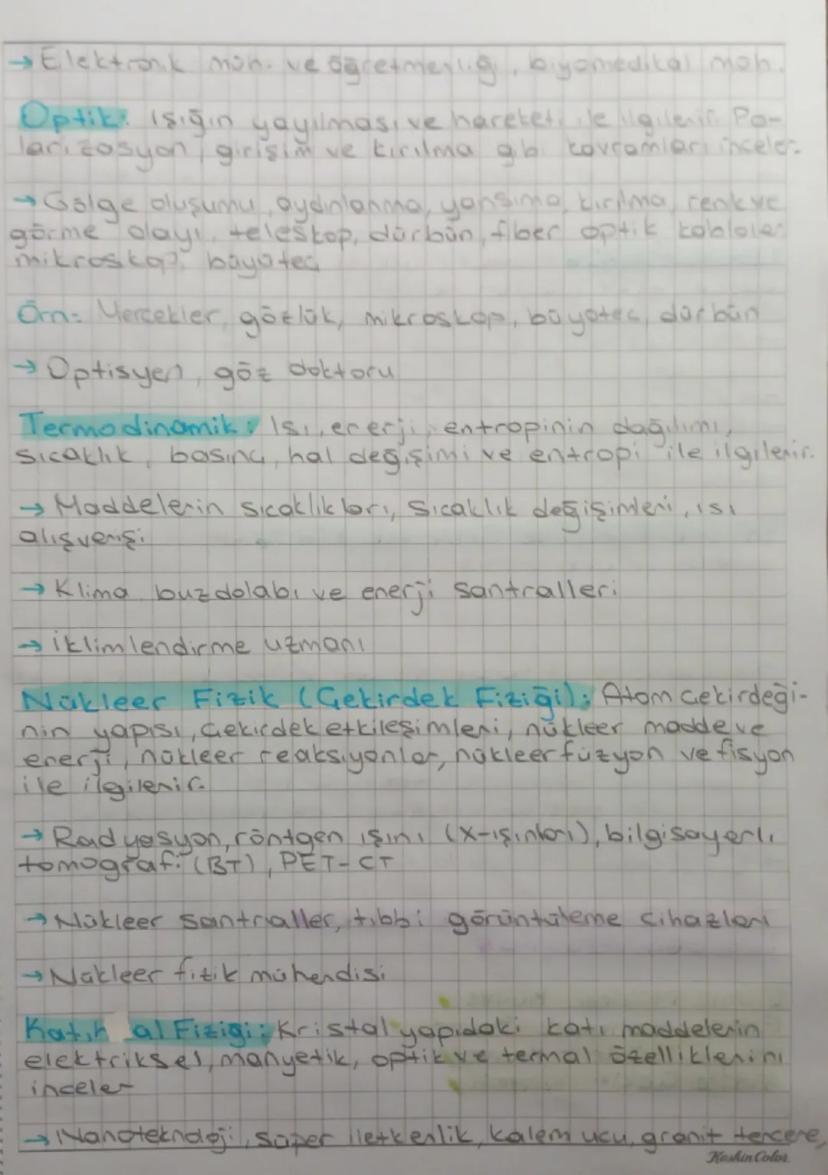 → Elektronik müh. ve öğretmenliği, biyomedikal müh.
Optik: Işığın yayılması ve hareketi ile ilgilenir. Po-
larizasyon, girişim ve kırılma gibi kavramları inceler.
→ Gölge oluşumu, aydınlanma, yansıma, kırılma, renk ve
görme olayı, teleskop, dürbün, fiber optik kablolar
mikroskop, büyüteç
Örn: Mercekler, gözlük, mikroskop, büyüteç, dürbün
→ Optisyen, göz doktoru
Termodinamik: Isı, enerji, entropinin dağılımı,
sıcaklık, basınç, hal değişimi ve entropi ile ilgilenir.
→ Maddelerin sıcaklıkları, sıcaklık değişimleri, ısı
alışverişi
→ Klima buzdolabı ve enerji santralleri
→ İklimlendirme uzmanı
Nükleer Fizik (Çekirdek Fiziği): Atom çekirdeği-
nin yapısı, çekirdek etkileşimleri, nükleer madde ve
enerji, nükleer reaksiyonlar, nükleer füzyon ve fisyon
ile ilgilenir.
→ Radyasyon, röntgen ışını (X-ışınları), bilgisayarlı
tomografi (BT), PET-CT
→ Nükleer santraller, tıbbi görüntüleme cihazları
→ Nükleer fizik mühendisi
Katıh al Fiziği: Kristal yapıdaki katı maddelerin
elektriksel, manyetik, optik ve termal özelliklerini
inceler
→ Nanoteknoloji, süper iletkenlik, kalem ucu, granit tencere,
KeskinColor